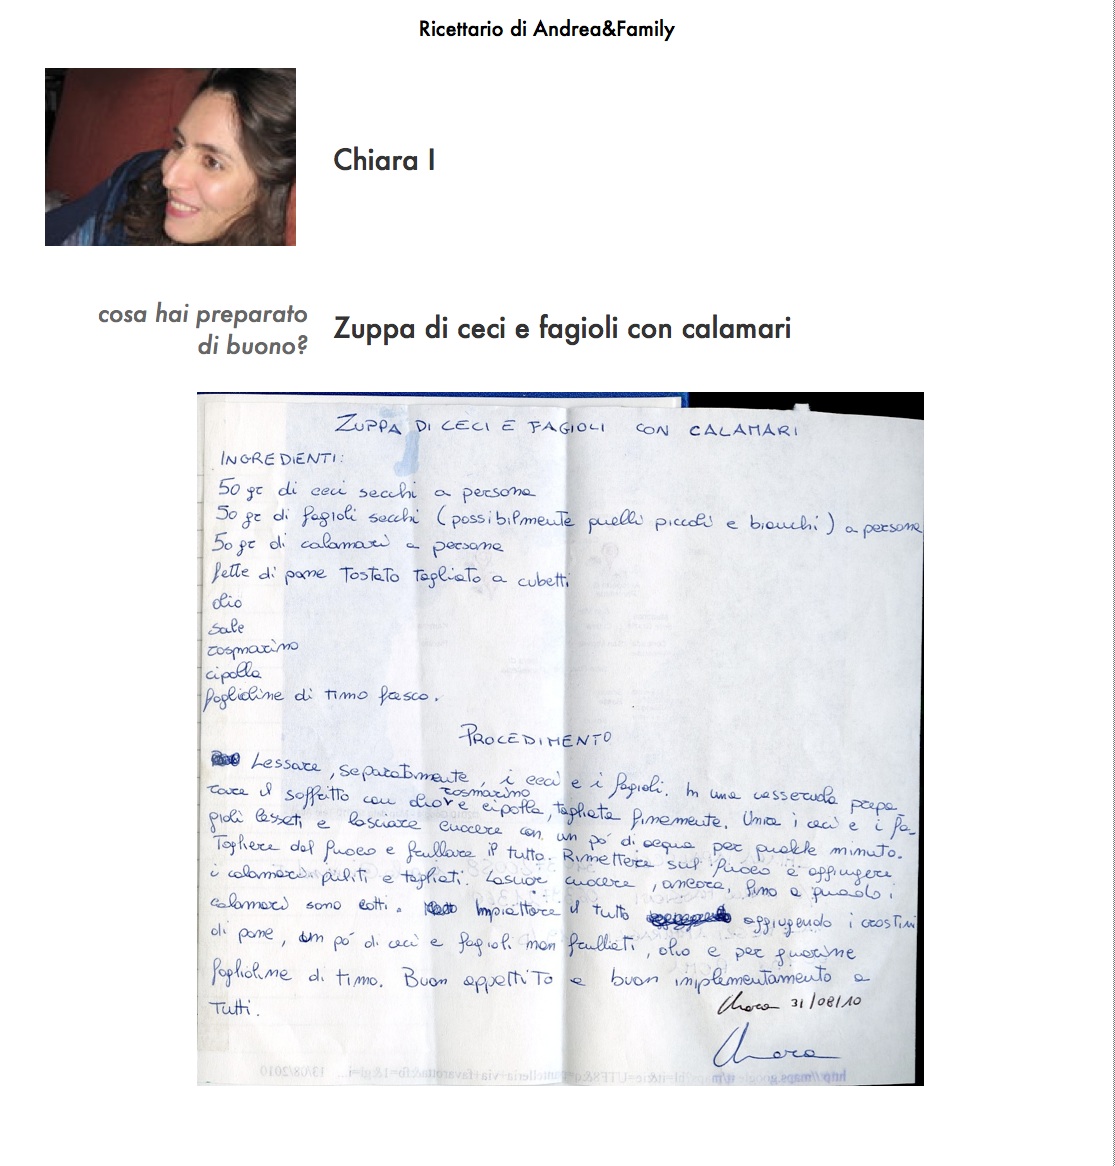 Ricettario di Andrea&Family
Chiara I
cosa hai preparato
di buono?
Zuppa di ceci e fagioli con calamari
ZUPPA DI CECI E FAGIOLI CON CALAMARI
INGREDIENTI:
50 gr di ceci secchi a persona
50 gr di fagioli secchi (possibilmente quelli piccoli e bianchi) a persona
50 gr di calamari a persona
fette di pane tostato tagliato a cubetti
olio
sale
rosmarino
cipolla
foglioline di timo fresco.
PROCEDIMENTO
Lessare, separatamente, i ceci e i fagioli. In una casseruola prepa
rare il soffritto con olio rosmarino e cipolla, tagliata finemente. Unire i ceci e i fa
gioli lessati e lasciare cuocere con un po' di acqua per qualche minuto.
Togliere dal fuoco e frullare il tutto. Rimettere sul fuoco e aggiungere
i calamari puliti e tagliati. Lasciar cuocere, ancora, fino a quando i
calamari sono cotti. Impiattare il tutto aggiugendo i crostini
di pane, un po' di ceci e fagioli non frullati, olio e per guarnire
foglioline di timo. Buon appetito e buon implementamento a
tutti.
Chiara 31/08/10
Chiara